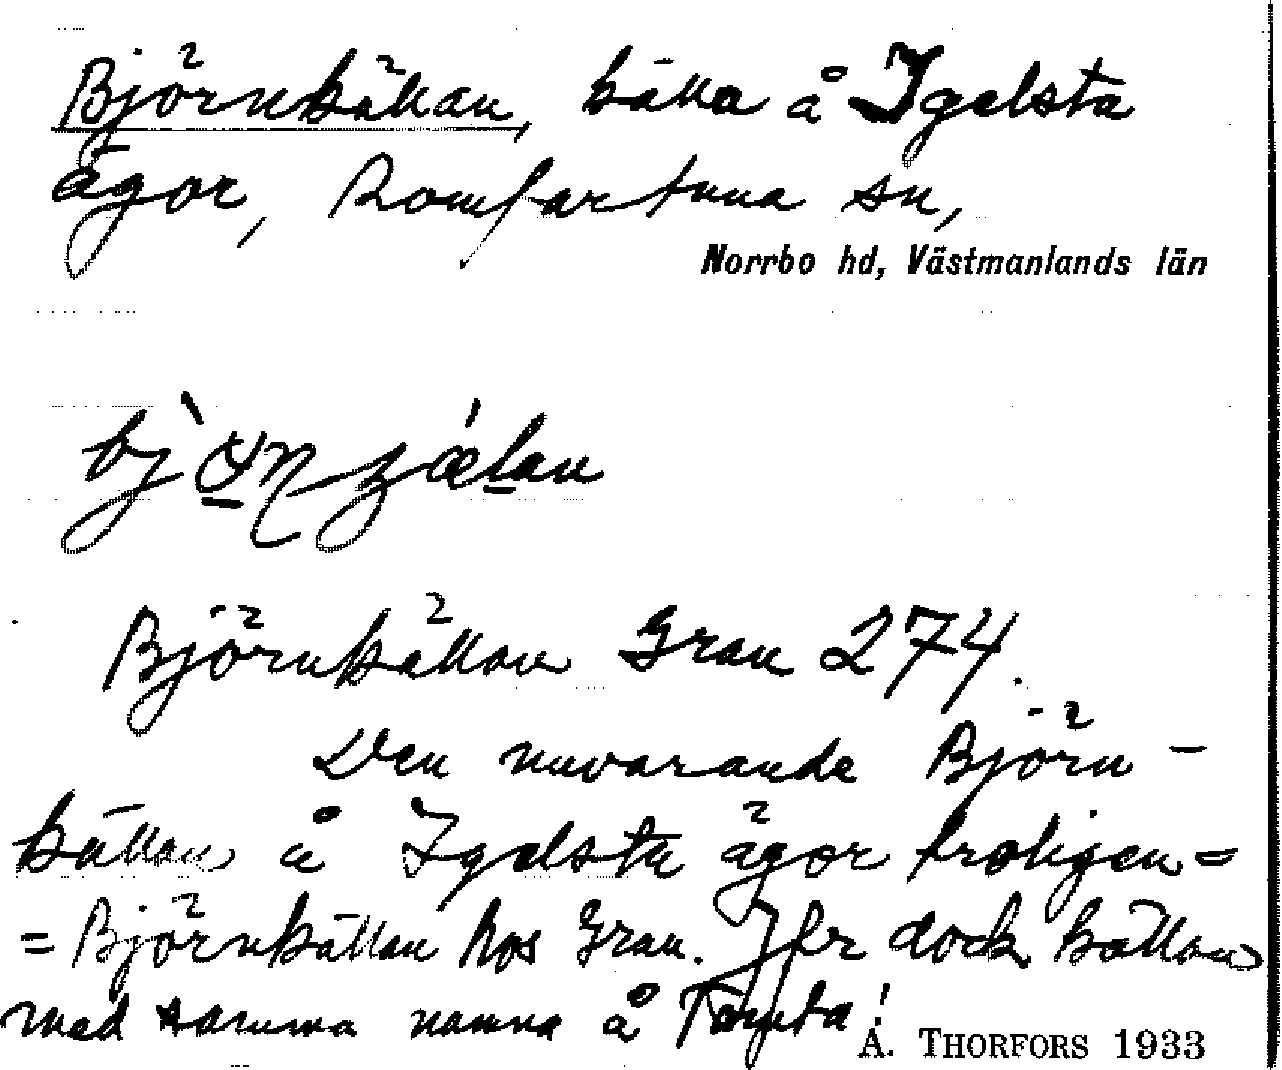 Björnkällan, källa å Igelsta
ägor, Romfartuna sn,
Norrbo hd, Västmanlands län
Björnkällan Grau 274.
Den nuvarande Björn-
källan å Igelsta ägor troligen =
= Björnkällan hos Grau. Jfr dock källan
med samma namn å Tomta!
A. THORFORS 1933